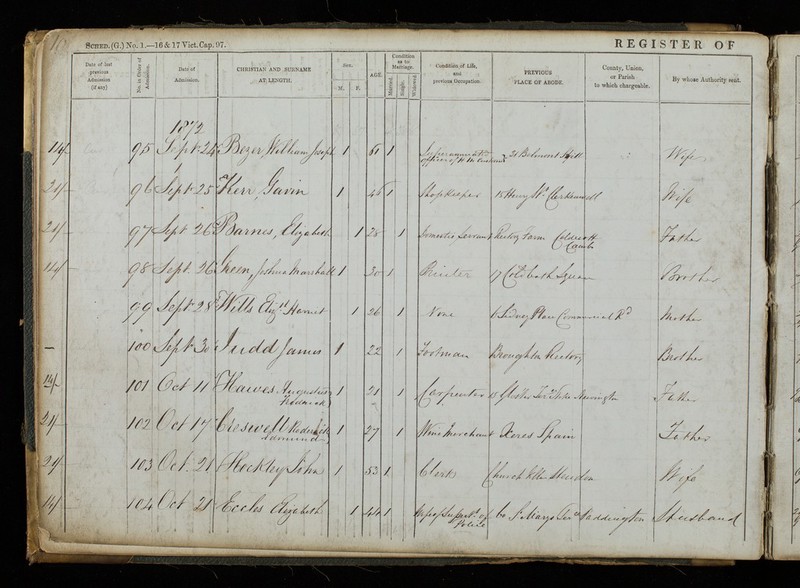 SCHED. (G.) No. 1.—16 & 17 Vict. Cap. 97.
REGISTER OF
Date of last previous Admission (if any)
No. in Order of Admission.
Date of Admission.
CHRISTIAN AND SURNAME AT LENGTH.
Sex.
M. F.
AGE.
Condition as to Marriage.
Married. Single. Widowed.
Condition of Life, and previous Occupation.
PREVIOUS PLACE OF ABODE.
County, Union, or Parish to which chargeable.
By whose Authority sent.
1872
14/- 95 Sept 24 Bezer William Joseph 1 61 1 Superannuated officer of H M Customs 21 Belmont Wife
21/- 96 Sept 25 Kerr, Gavin 1 46 1 Shopkeeper 15 Henry St Clerkenwell Wife
21/- 97 Sept 26 Barnes, Elizabeth 1 28 1 Domestic Servant Rectory Farm Cambs Father
14/- 98 Sept 26 Joshua Marshall 1 30 1 Printer 17 Coldbath Square Brother
99 Sept 28 Wills Harriet 1 26 1 None 6 Sidney Place Commercial Rd Mother
— 100 Sept 30 Judd James 1 22 1 Footman Broughton Rectory Brother
14/- 101 Oct 11 Hawes Augustus 1 21 1 Carpenter Newington Father
21/- 102 Oct 17 Creswell Roderick Edmund 1 27 1 Wine Merchant Xeres Spain Father
21/- 103 Oct. 21 Hockley John 1 53 1 Clerk Church Hendon Wife
14/- 104 Oct 21 Eccles Elizabeth 1 44 1 Wife of Supert. of Police 60 St Marys Terce Paddington Husband